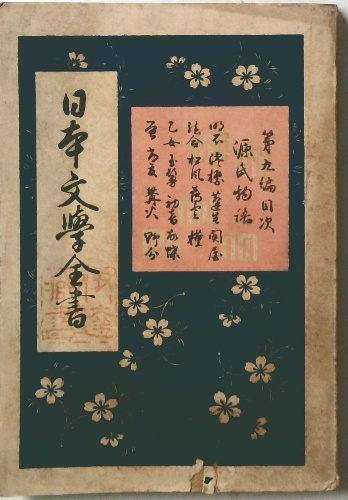 第九編目次
源氏物語
明石 澪標 蓬生 関屋
絵合 松風 薄雲 槿
乙女 玉鬘 初音 胡蝶
螢 常夏 篝火 野分
日本文學全書